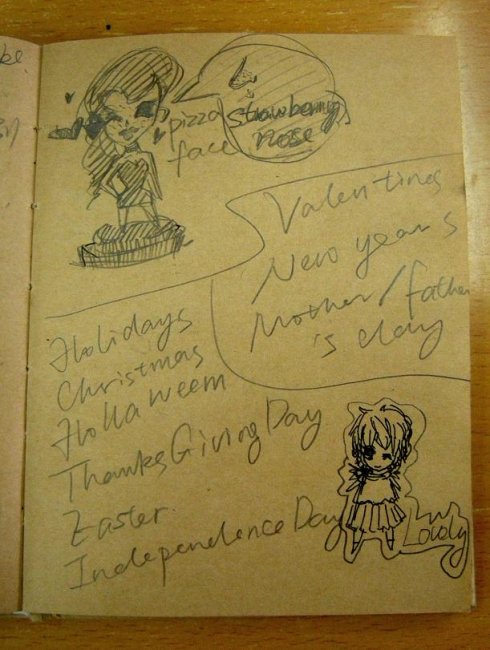 pizza
face
strawberry
nose
Valentines
New year's
Mother/father
's day
Holidays
Christmas
Hollaweem
ThanksGiving Day
Easter
Independence Day
Lovely